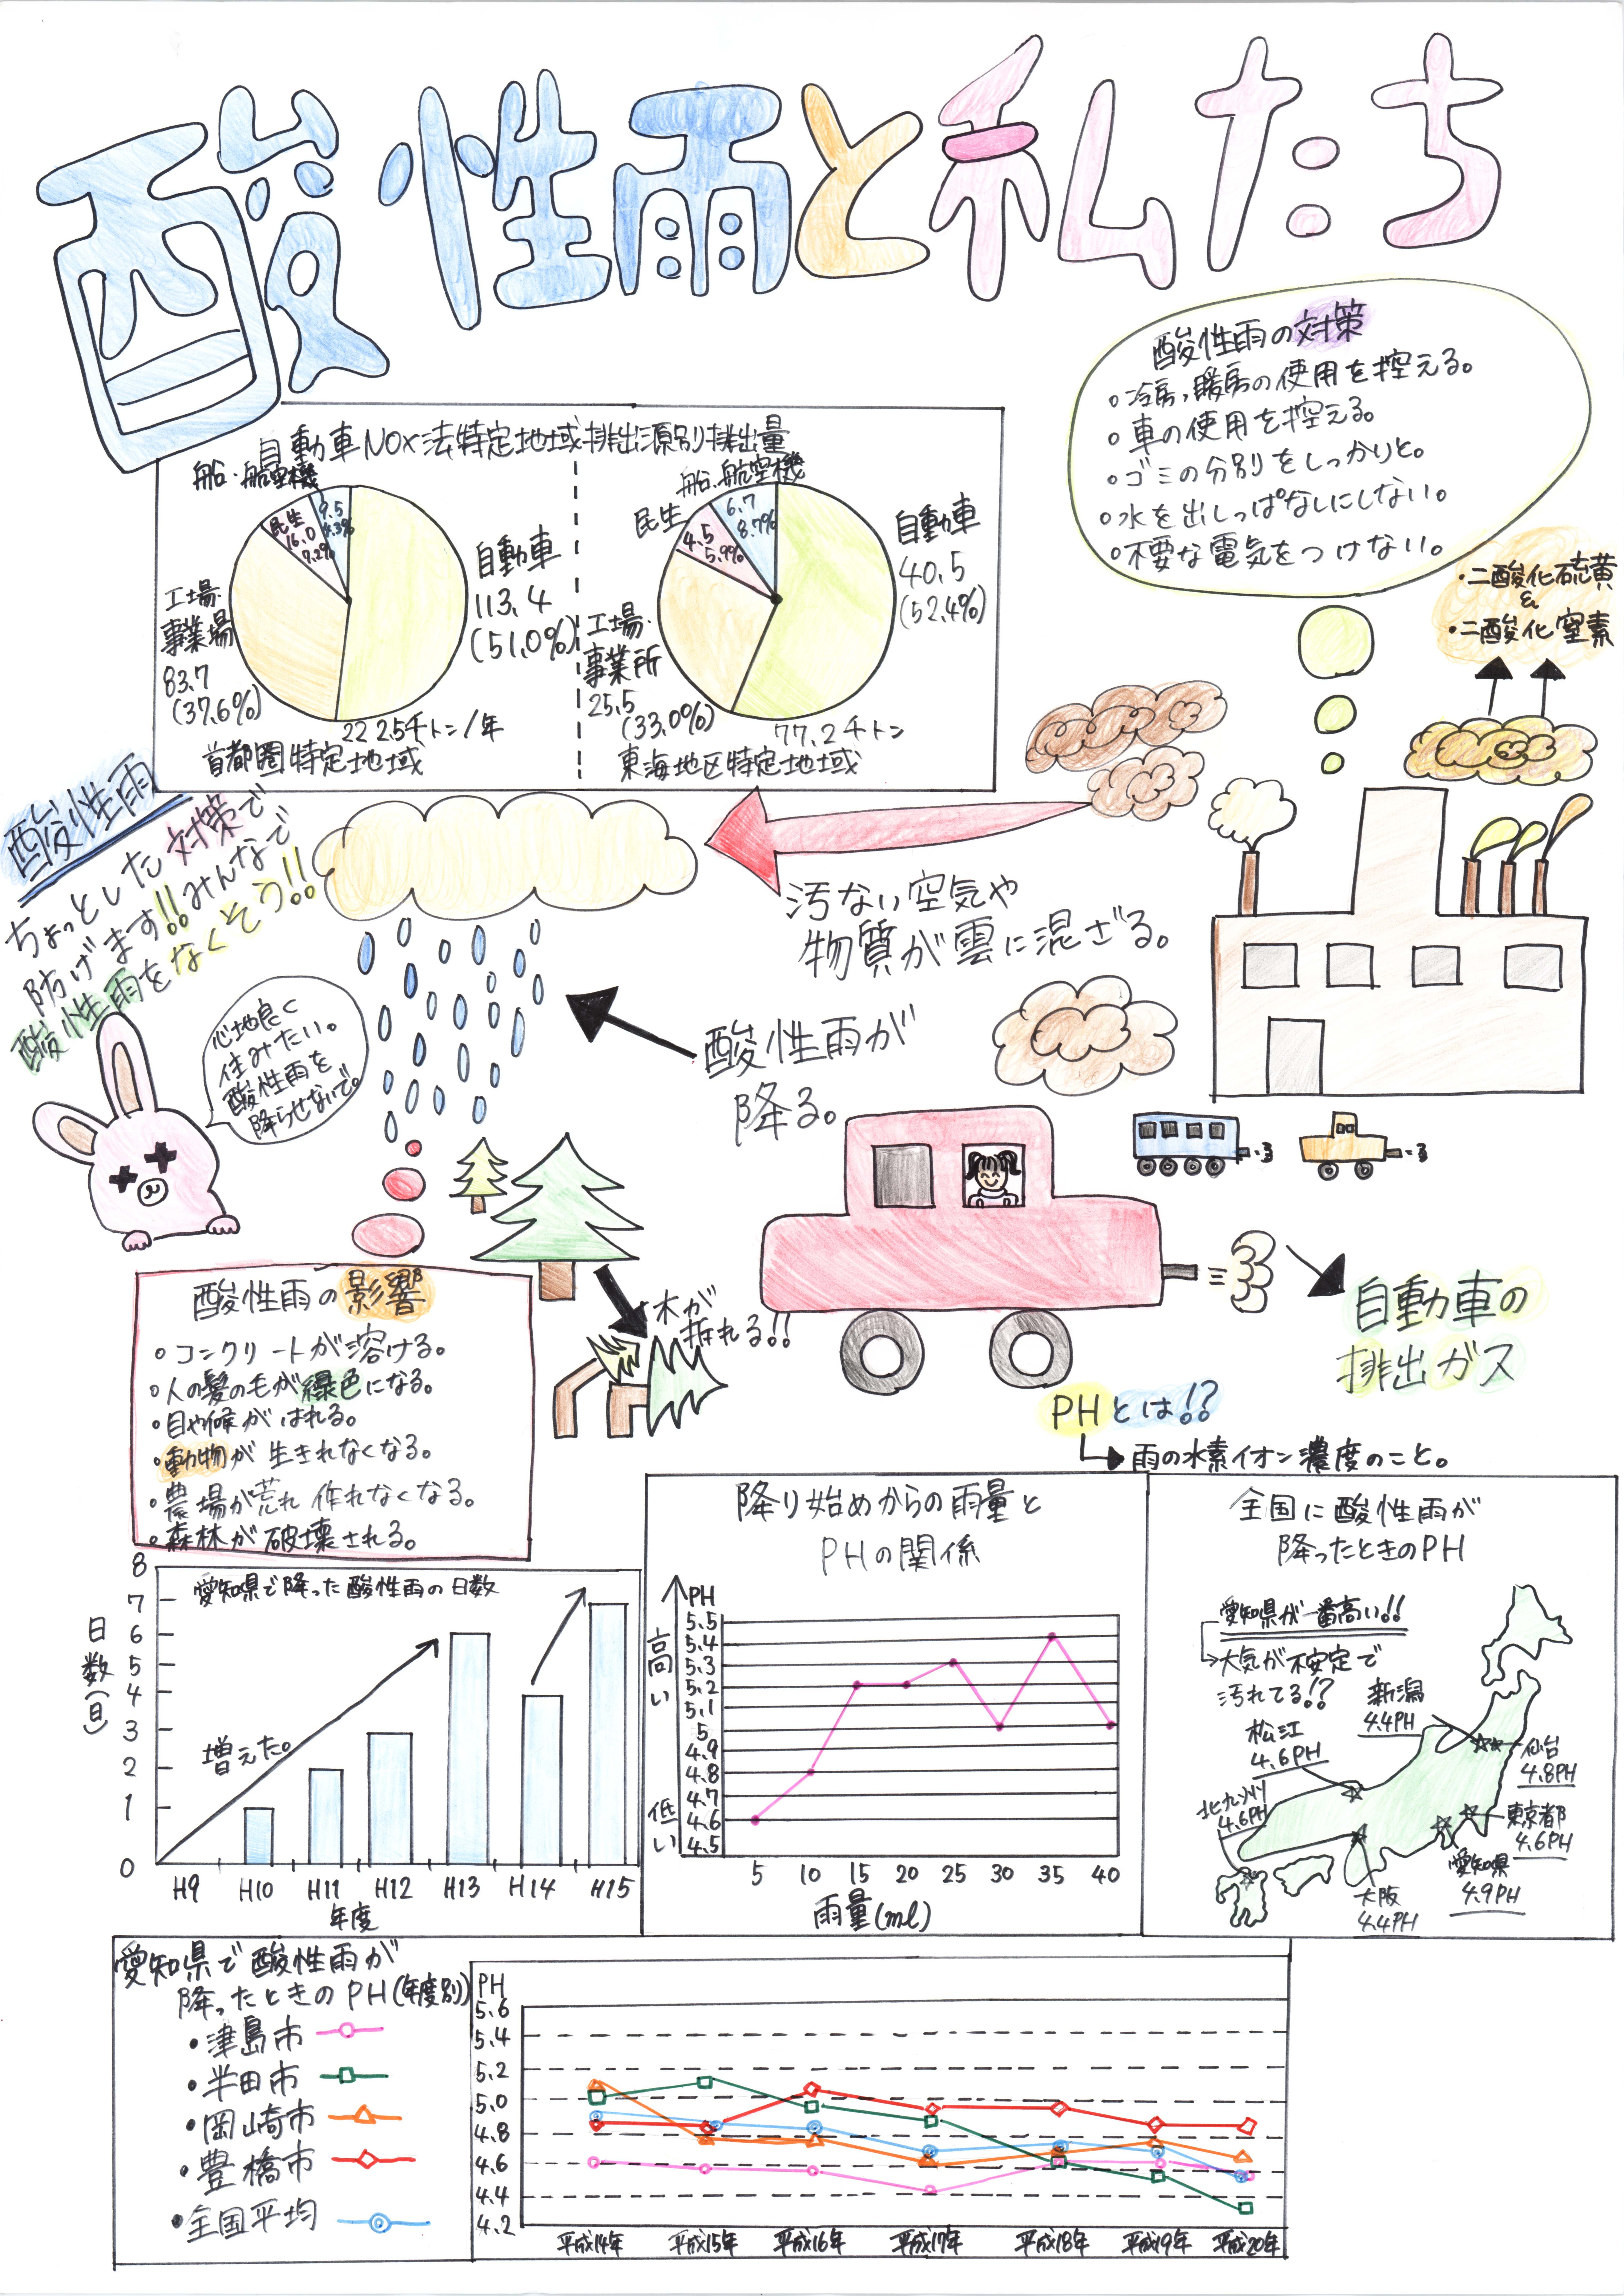 酸性雨と私たち
酸性雨の対策
・冷房、暖房の使用を控える。
・車の使用を控える。
・ゴミの分別をしっかりと。
・水を出しっぱなしにしない。
・不要な電気をつけない。
・二酸化硫黄
&
・二酸化窒素
自動車NOx法特定地域排出源別排出量
船・航空機
9.5
4.3%
民生
16.0
7.2%
自動車
113.4
(51.0%)
工場・
事業場
83.7
(37.6%)
222.5千トン/年
首都圏特定地域
船・航空機
6.7
8.7%
民生
4.5
5.9%
自動車
40.5
(52.4%)
工場・
事業所
25.5
(33.0%)
77.2千トン
東海地区特定地域
酸性雨
ちょっとした対策で
防げます!!みんなで
酸性雨をなくそう!!
汚ない空気や
物質が雲に混ざる。
心地良く
住みたい。
酸性雨を
降らせないで。
酸性雨が
降る。
木が
折れる!!
自動車の
排出ガス
酸性雨の影響
・コンクリートが溶ける。
・人の髪の毛が緑色になる。
・目や候がはれる。
・動物が生きれなくなる。
・農場が荒れ作れなくなる。
・森林が破壊される。
PHとは!?
雨の水素イオン濃度のこと。
愛知県で降った酸性雨の日数
日数(日)
8
7
6
5
4
3
2
1
0
増えた。
H9 H10 H11 H12 H13 H14 H15
年度
降り始めからの雨量と
PHの関係
高い
低い
PH
5.5
5.4
5.3
5.2
5.1
5
4.9
4.8
4.7
4.6
4.5
5 10 15 20 25 30 35 40
雨量(ml)
全国に酸性雨が
降ったときのPH
愛知県が一番高い!!
大気が不安定で
汚れてる!?
新潟
4.4PH
松江
4.6PH
仙台
4.8PH
北九州
4.6PH
東京都
4.6PH
愛知県
4.9PH
大阪
4.4PH
愛知県で酸性雨が
降ったときのPH(年度別)
・津島市
・半田市
・岡崎市
・豊橋市
・全国平均
PH
5.6
5.4
5.2
5.0
4.8
4.6
4.4
4.2
平成14年 平成15年 平成16年 平成17年 平成18年 平成19年 平成20年